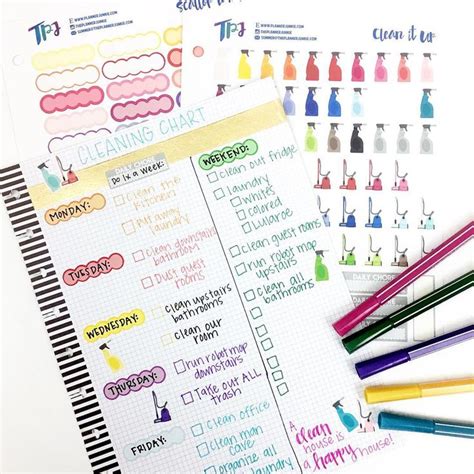 TPJ
WWW.PLANNERJUNKIE.COM
@THEPLANNERJUNKIE
TPJ
WWW.PLANNERJUNKIE.COM
@THEPLANNERJUNKIE
Clean it up
CLEANING CHART
DO 1X A WEEK:
MONDAY:
clean the kitchen
put away laundry
TUESDAY:
clean downstairs bathroom
Dust guest rooms
WEDNESDAY:
clean upstairs bathrooms
clean our room
THURSDAY:
run robot mop downstairs
Take out ALL trash
FRIDAY:
clean office
clean man cave
organize all laundry
WEEKEND:
clean out fridge
laundry
whites
colored
Lularoe
clean guest rooms
run robot mop upstairs
clean all bathrooms
DAILY CHORE
A
clean
house is
a happy
house!